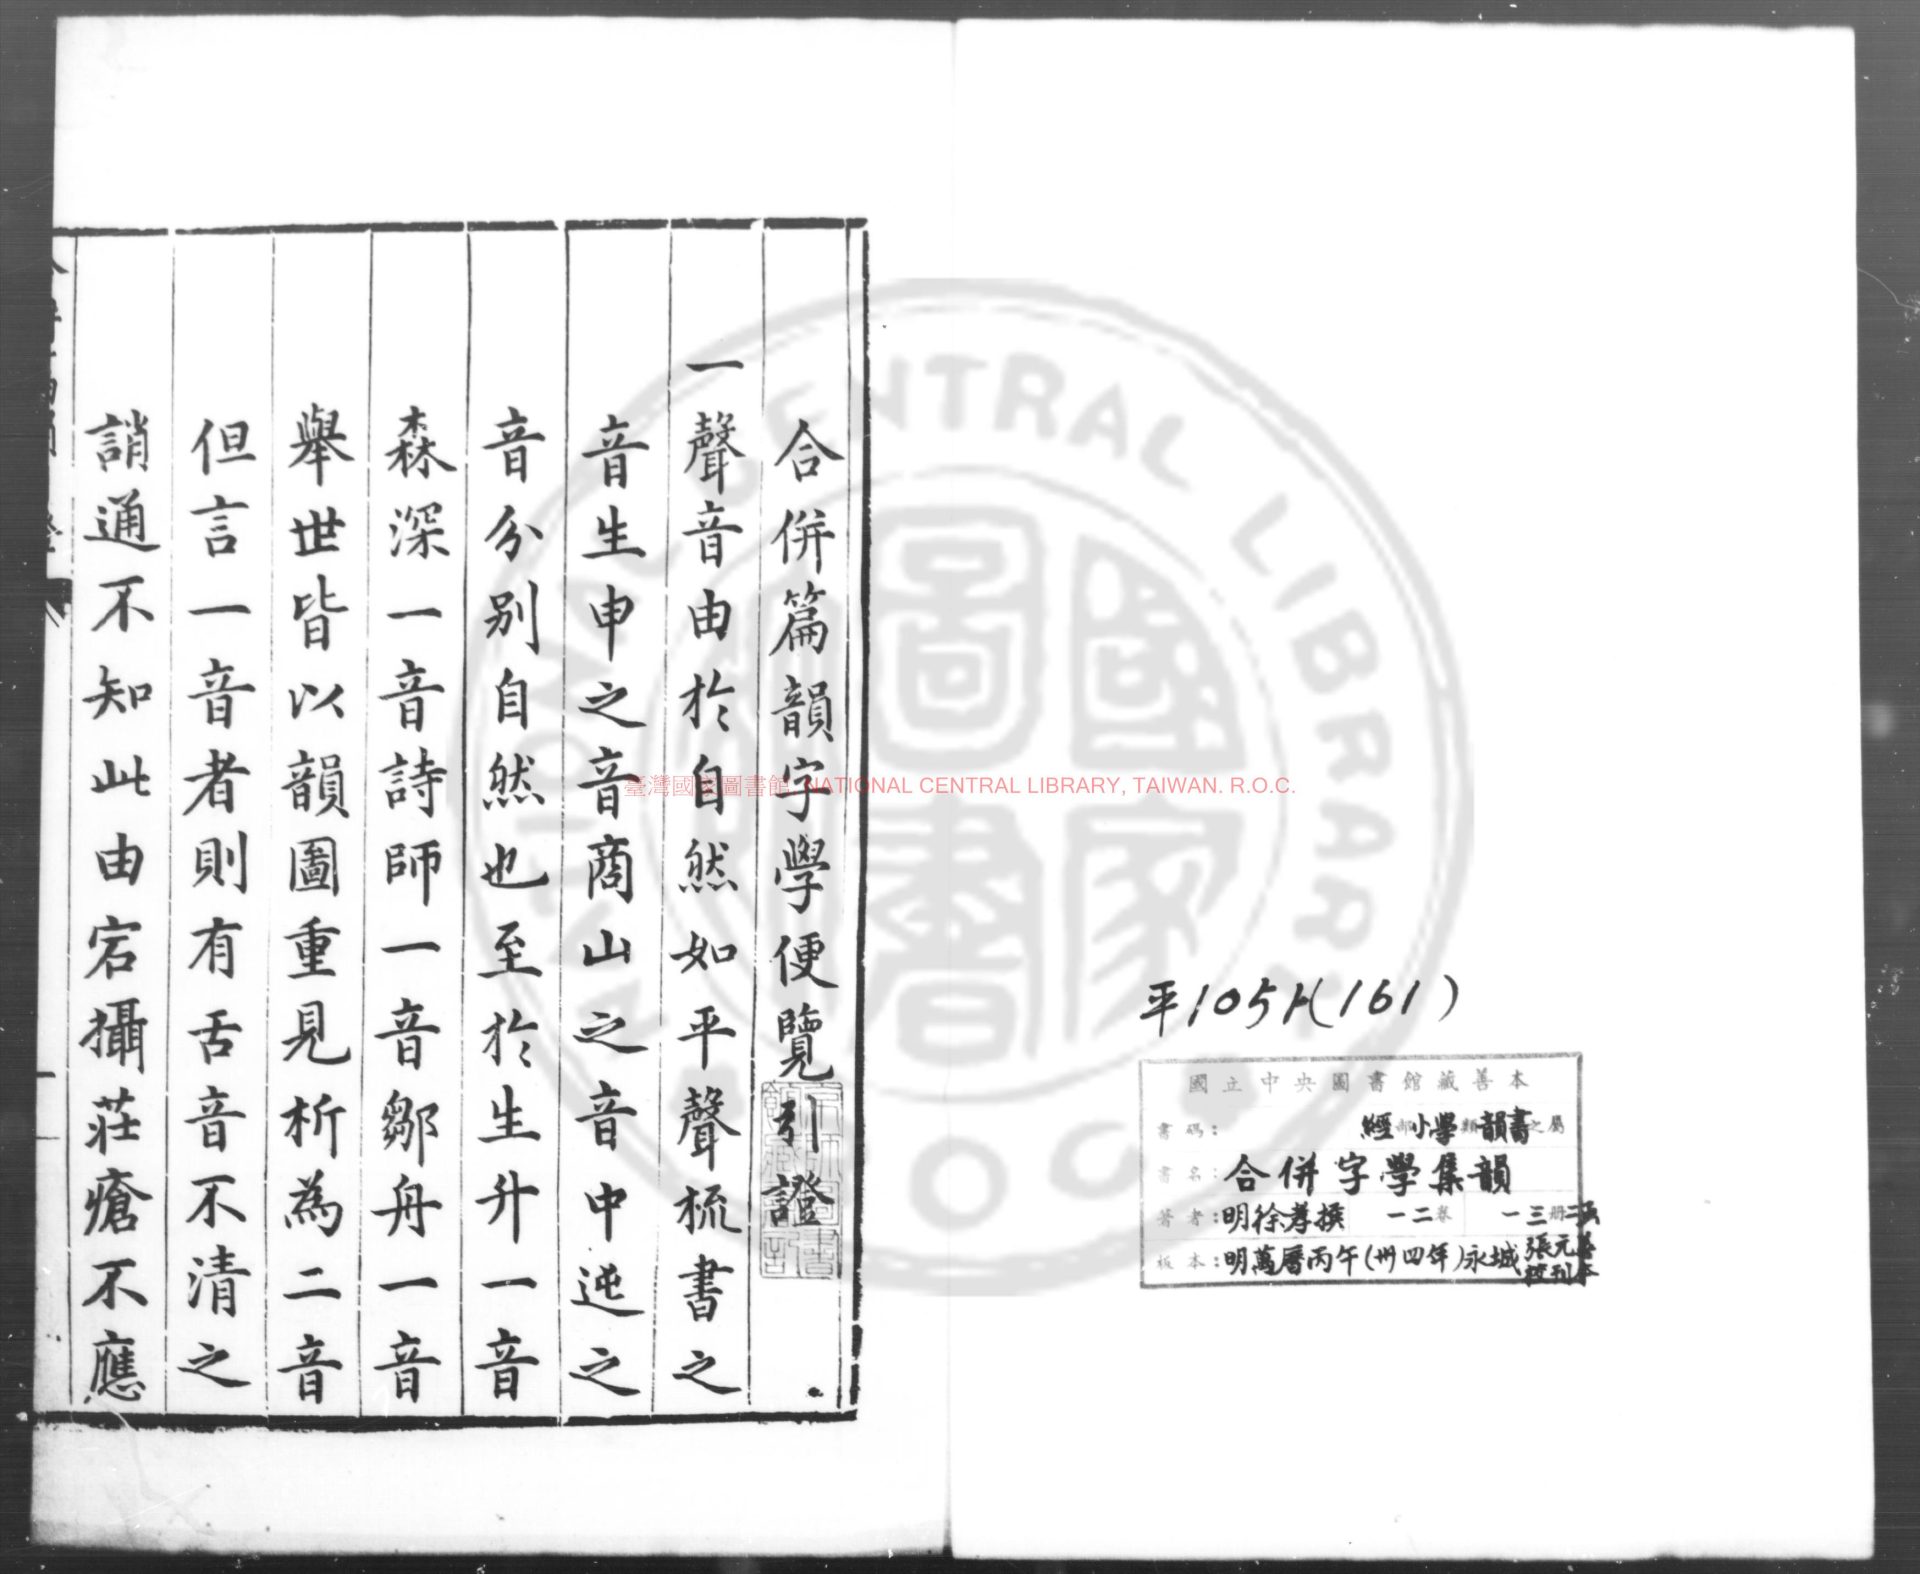 平1051(161)
國立中央圖書館藏善本
書碼：經部小學類韻書之屬
書名：合併字學集韻
著者：明徐孝撰 一二卷 一三冊
板本：明萬曆丙午(卅四年)永城張元善校刊本
合併篇韻字學便覽引證
一聲音由於自然如平聲梳書之
音生申之音商山之音中迍之
音分別自然也至於生升一音
森深一音詩師一音鄒舟一音
舉世皆以韻圖重見析為二音
但言一音者則有舌音不清之
誚通不知此由宕攝莊瘡不應
臺灣國家圖書館 NATIONAL CENTRAL LIBRARY, TAIWAN. R.O.C.
NATIONAL CENTRAL LIBRARY
R.O.C.
國家圖書